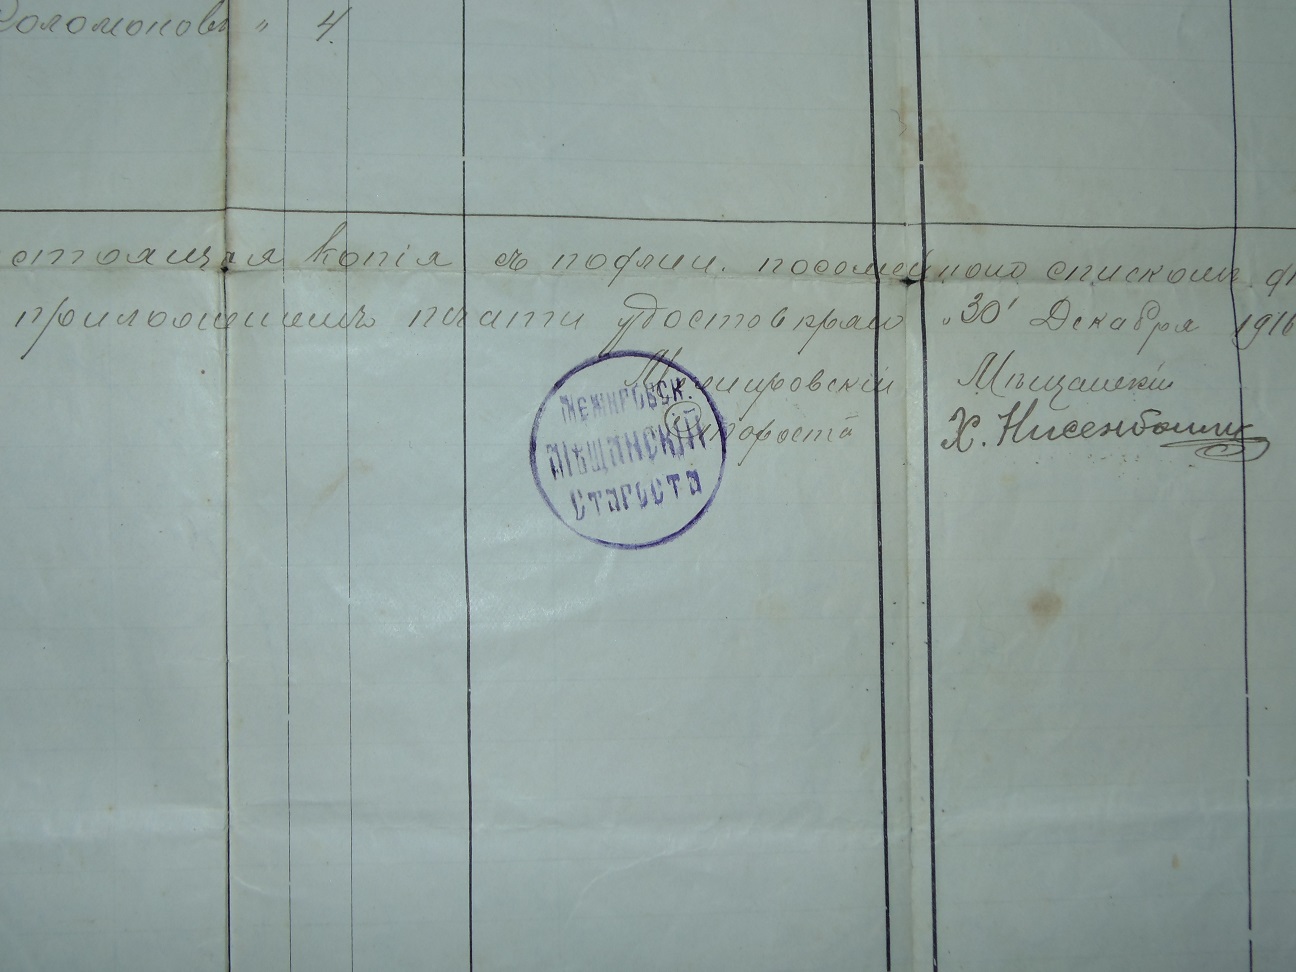 Соломоновъ " 4.
стоящая копія съ подлин. посемейнымъ спискомъ
приложеніемъ печати удостовѣряю „30" Декабря 1916
Межировскій Мѣщанскій
Староста Х. Нисенбоимъ
МЕЖИРОВСК.
МѢЩАНСКІЙ
СТАРОСТА